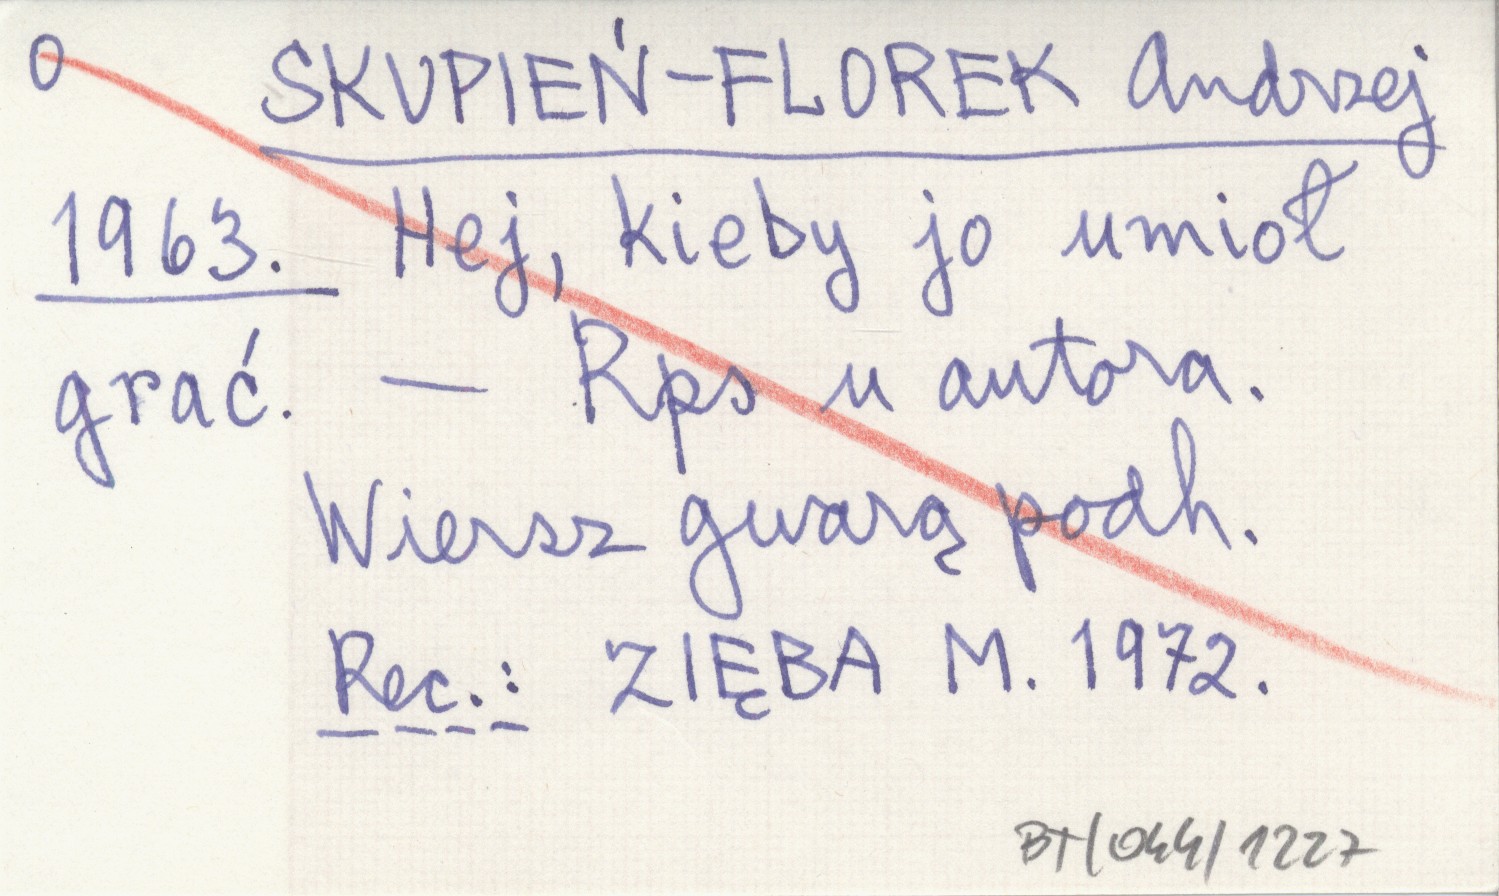 O SKUPIEŃ-FLOREK Andrzej
1963. Hej, kieby jo umioł
grać. — Rps u autora.
Wiersz gwarą podh.
Rec.: ZIĘBA M. 1972.
BT/044/1227